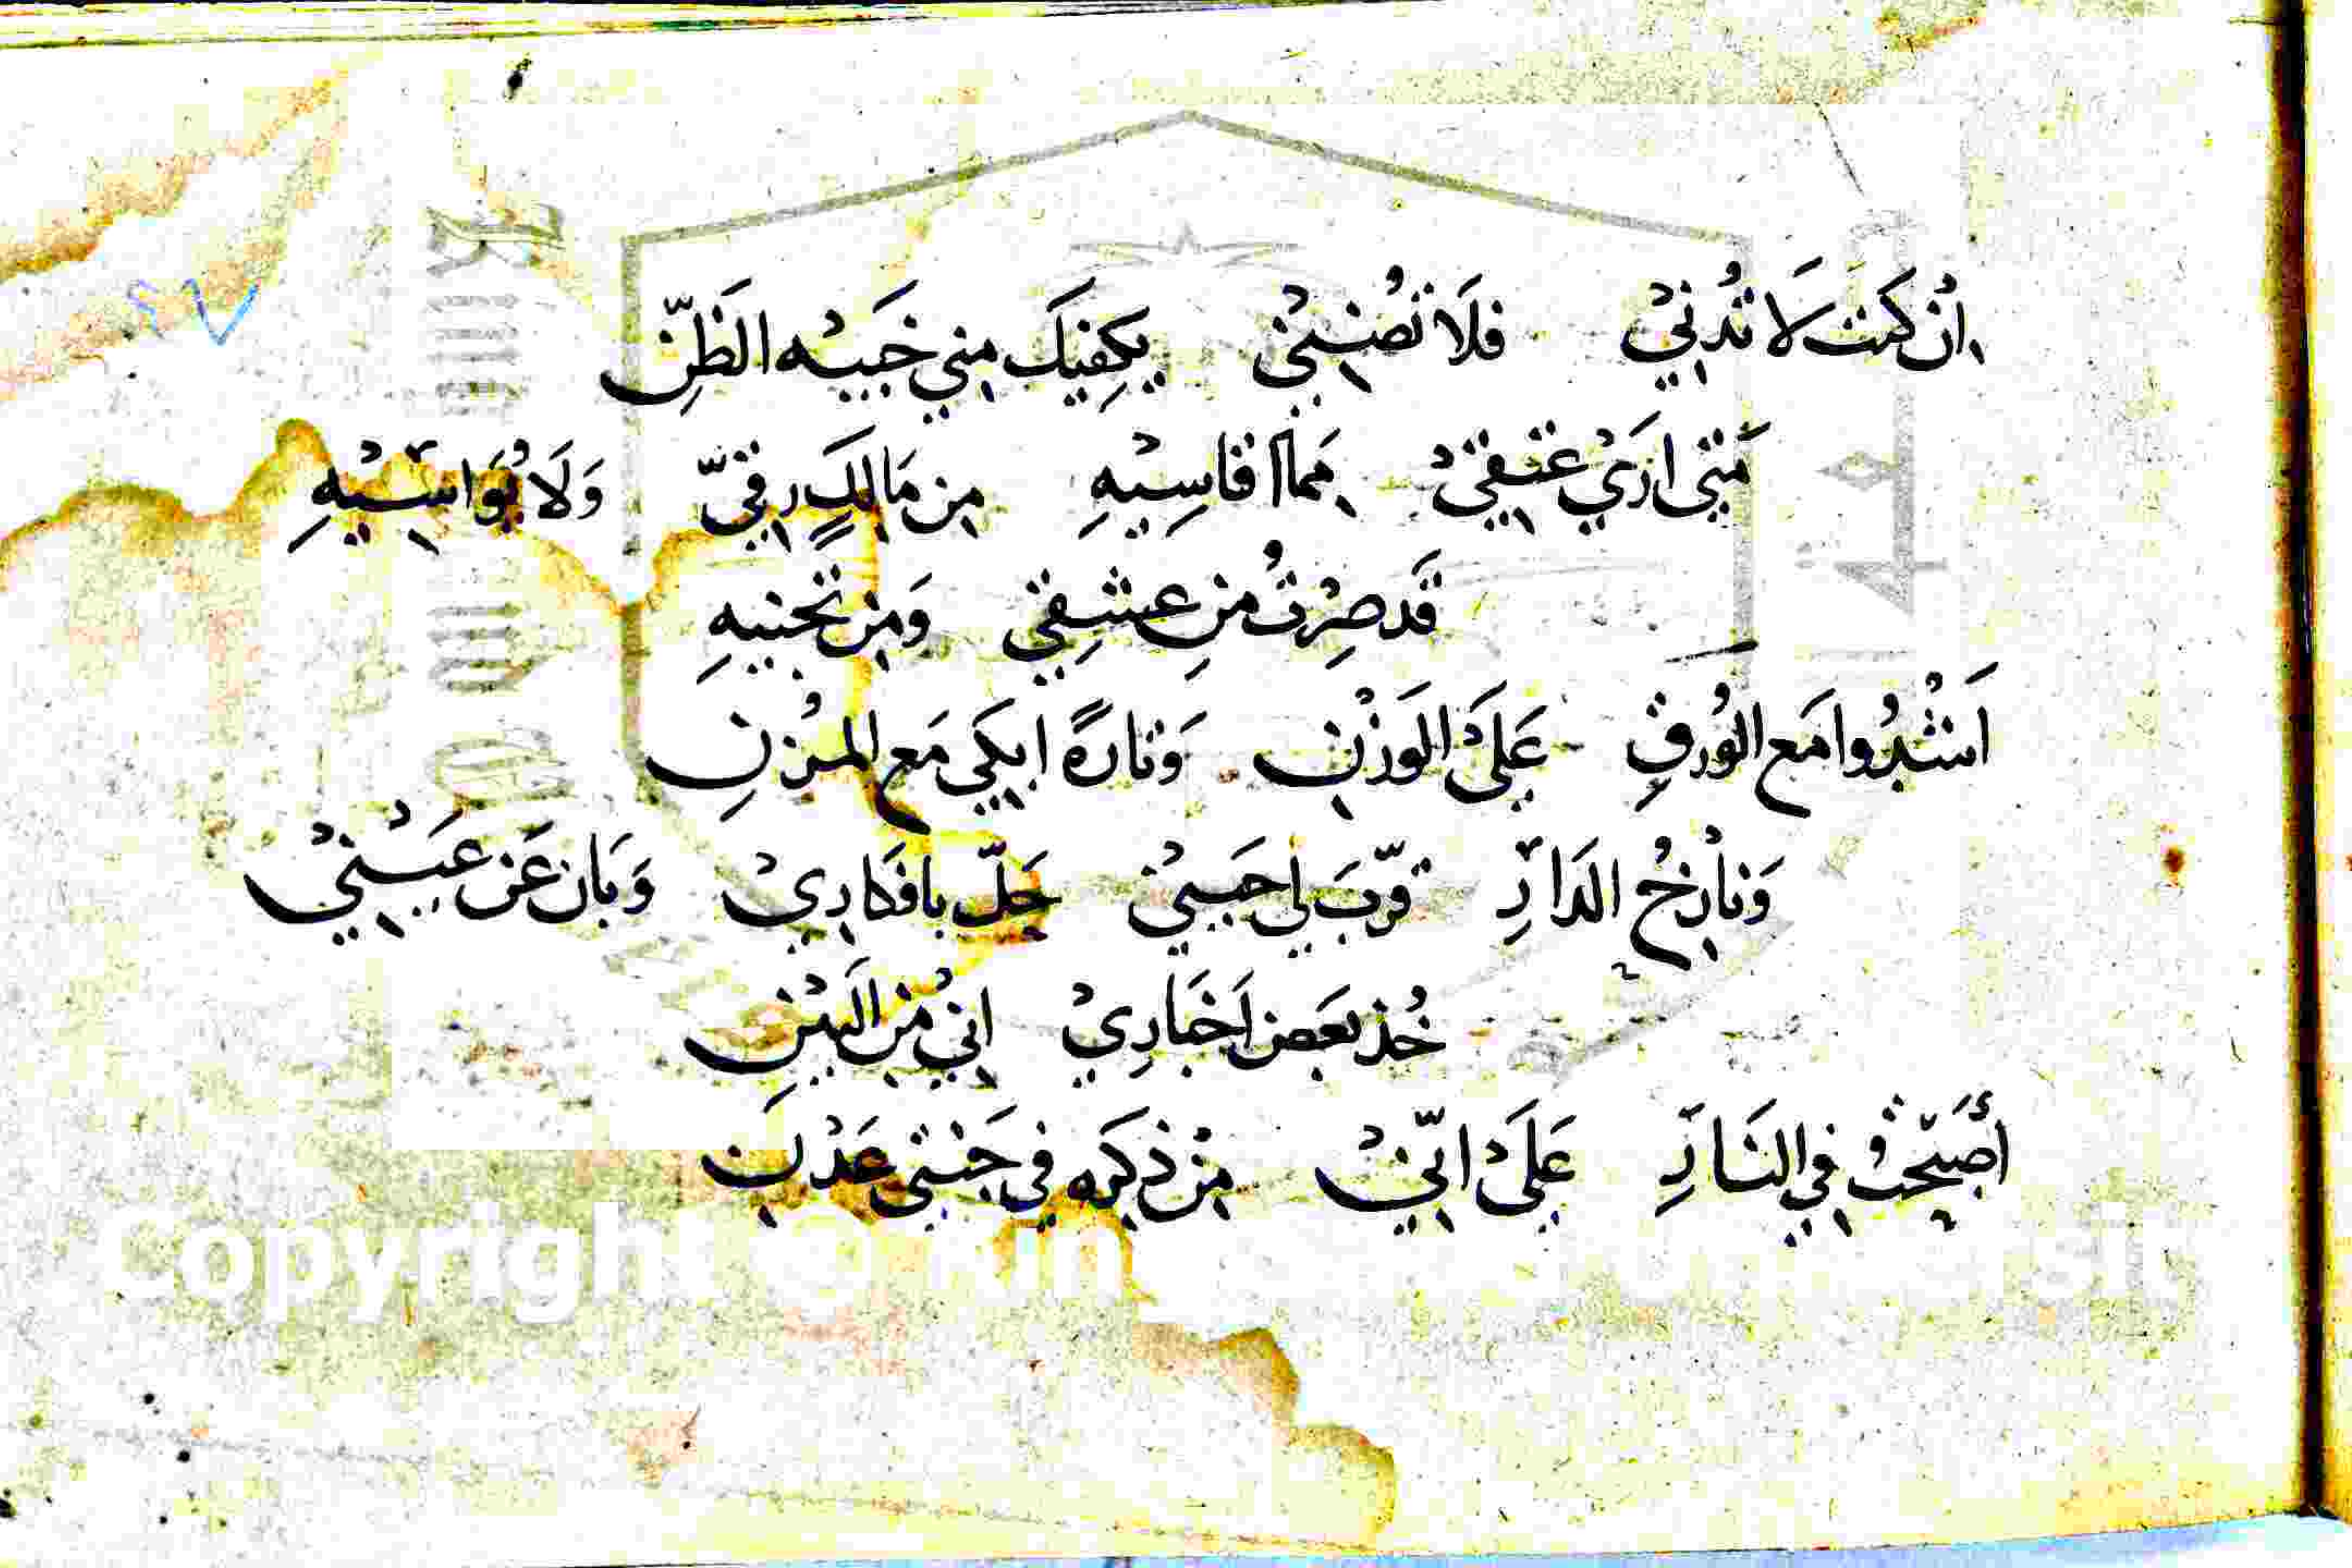 اِنْ كنت لَا تُدْنِيْ فلَا تُضْنِيْني يكفِيْكَ مِني خَيبْه الَظنّ
مَتى ارَيْ عتقيْ مِمَا اقاسِيْهِ مِن مَالكٍ رِقيّ وَلَا يُوَاسِيْهِ
قَد صِرْتُ منِ عشقِي وَمِن تَجنيهِ
اَشْدُوا مَع الوُرقِ عَلَىْ الَوزْنِ وَتارةً ابكي مَع المزْنِ
وَنازِحُ الدَارِ قرّبَ لي حَيْني حَلّ بافكارِيْ وَبَان عَن عَيْنيْ
خُذ بَعض اَخبَارِيْ اني مْن البَيْنِ
أصَبحْتُ في النَارِ عَلَىْ انّيْ مِنْ ذِكره في جَنتي عَدْنِ
Copyright © King Saud University